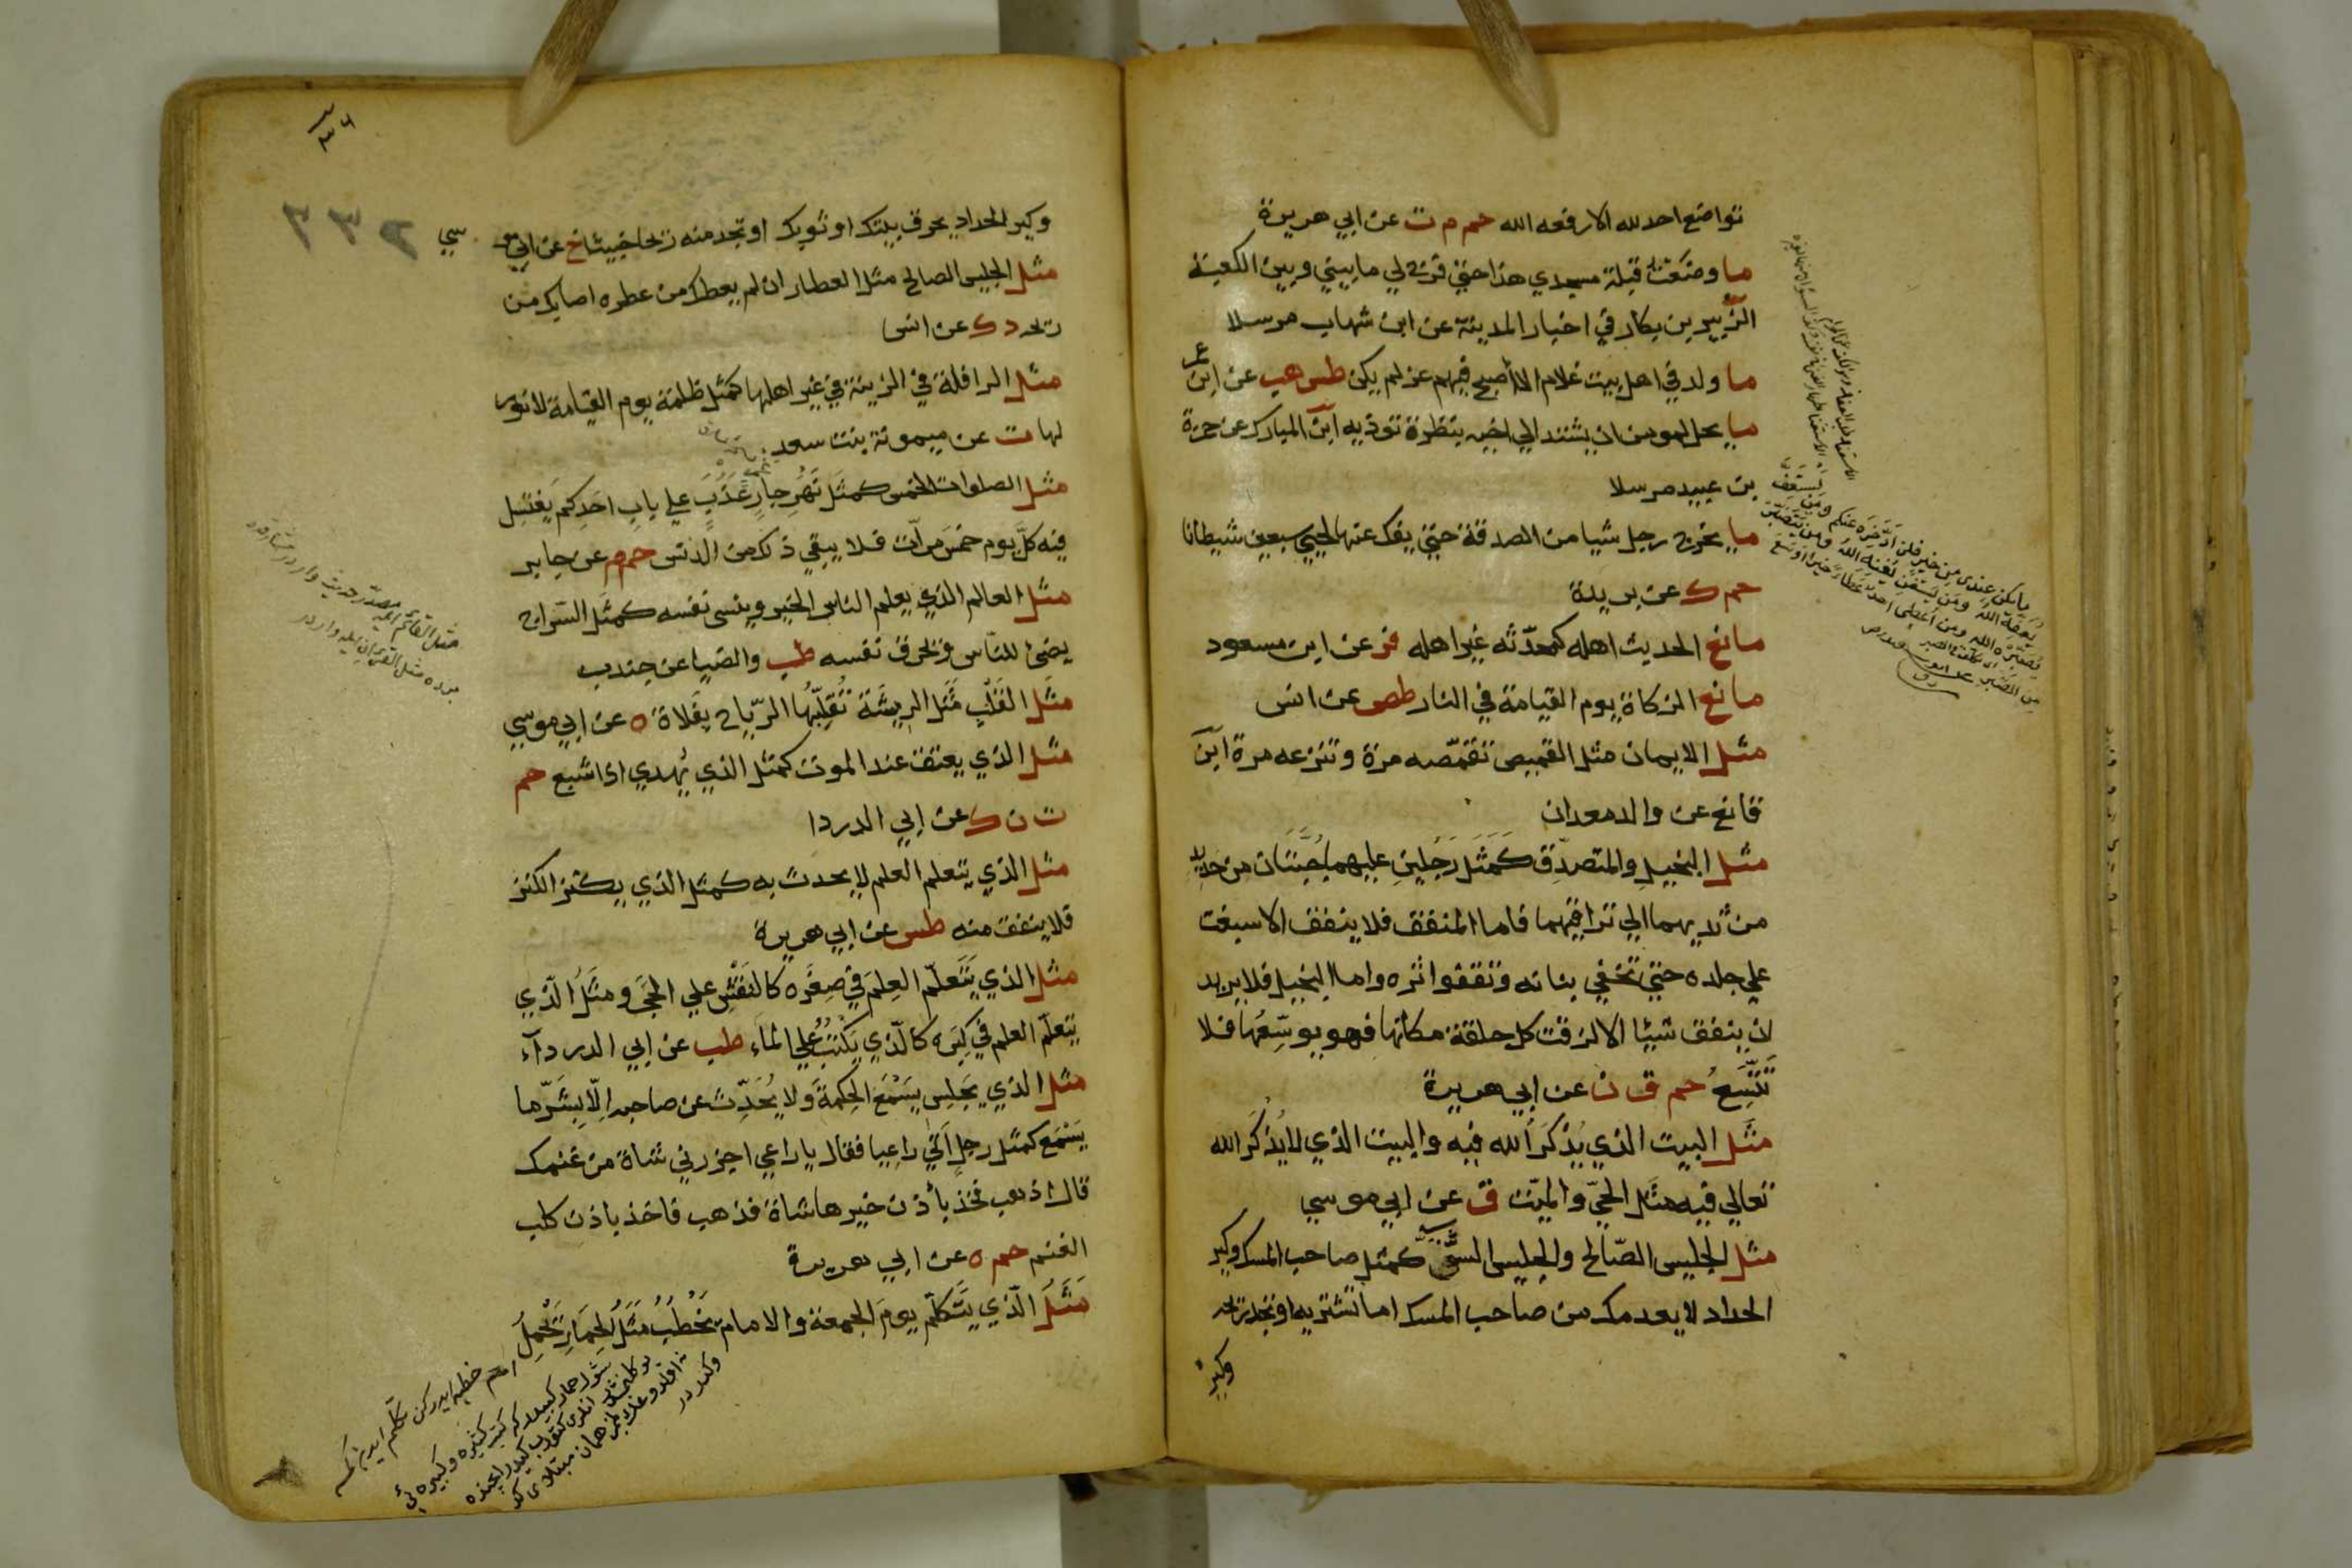 تواضع احد لله الا رفعه الله حم م ت عن ابي هريرة
ما وضعت قبلة مسجدي هذا حتي فرج لي ما بيني وبين الكعبة
الزبير بن بكار في اخبار المدينة عن ابن شهاب مرسلا
ما ولد في اهل بيت غلام الا اصبح فيهم عز لم يكن طس هب عن ابن عمر
ما يحل لمومن ان يشتد الي اخيه بنظرة توذيه ابن المبارك عن حمزة
بن عبيد مرسلا
ما يخرج رجل شيا من الصدقة حتي يفك عنها لحيي سبعين شيطانا
حم ك عن بريدة
مانع الحديث اهله كمحدّثه غير اهله فر عن ابن مسعود
مانع الزكاة يوم القيامة في النار طص عن انس
مثل الايمان مثل القميص تقمّصه مرة وتنزعه مرة ابن
قانع عن والد معدان
مثل البخيل والمتصدّق كَمَثَل رَجُلين عليهما جُبّتان من حديد
من ثديهما الي تراقيهما فاما المنفق فلا ينفق الا سبغت
علي جلده حتي تخفي بنانه وتقفوا اثره واما البخيل فلا يريد
ان ينفق شيئا الا لزقت كل حلقة مكانها فهو يوسّعها فلا
تَتَّسِعُ حم ق ن عن ابي هريرة
مَثَل البيت الذي يُذْكَر الله فيه والبيت الذي لا يُذْكَر الله
تعالي فيه مثل الحيّ والميّت ق عن ابي موسي
مثل الجليس الصّالح والجليس السوء كمثل صاحب المسك وكير
الحداد لا يعدمك من صاحب المسك اما تشتريه او تجد ريحه
وكير
ما يكن عندي من خير فلن ادّخره عنكم ومن يستعفف
يعفّه الله ومن يستغن يغنه الله ومن يتصبر
يُصبّره الله وما اعطي احد عطاء خيرا اوسع
من الصبر
٢٣٥
وكير الحداد يحرق بيتك او ثوبك او تجد منه ريحا خبيثا خ عن ابي موسي
مثل الجليس الصالح مثل العطار ان لم يعطك من عطره اصابك من
ريحه د ك عن انس
مثل الرافلة في الزينة في غير اهلها كمثل ظلمة يوم القيامة لا نور
لها ت عن ميمونة بنت سعد
مثل الصلوات الخمس كمثَل نَهْرٍ جارٍ عَذْبٍ علي باب احدكم يَغتسِل
فيه كلّ يوم خمسَ مرّات فلا يبقي ذلك من الدنس حم م عن جابر
مثل العالم الذي يعلم الناس الخير وينسي نفسه كمثَل السّراج
يضئ للنّاس ويحرق نفسه طب والضيا عن جندب
مَثَل القَلْبِ مَثَل الريشة تُقلّبُها الرّياح بفَلاة ه عن ابي موسي
مثل الذي يعتق عند الموت كمثل الذي يُهدي اذا شبع حم
ت ن ك عن ابي الدردا
مثل الذي يتعلم العلم لا يحدث به كمثل الذي يكنز الكنز
فلا ينفق منه طس عن ابي هريرة
مثل الذي يَتَعلّم العِلمَ في صِغَره كالنقش علي الحجَر ومثَل الّذي
يتعلّم العلم في كِبَره كالّذي يَكْتبُ علي الماء طب عن ابي الدرداء
مثل الذي يَجلِس يَسْمَع الحِكمةَ ولا يُحَدّث عن صاحبه اِلّا بشَرّ ما
يَسْمَع كمثل رجل اَتي راعيا فقال يا راعي اجزرني شاة من غنمك
قال اذهب فخذ باُذن خيرها شاة فذهب فاخذ باذن كلب
الغنم حم ه عن ابي هريرة
مَثَلُ الّذي يَتَكلّم يومَ الجمعة والامام يَخْطُبُ مَثَلُ الحِمَارِ يَحْمِلُ